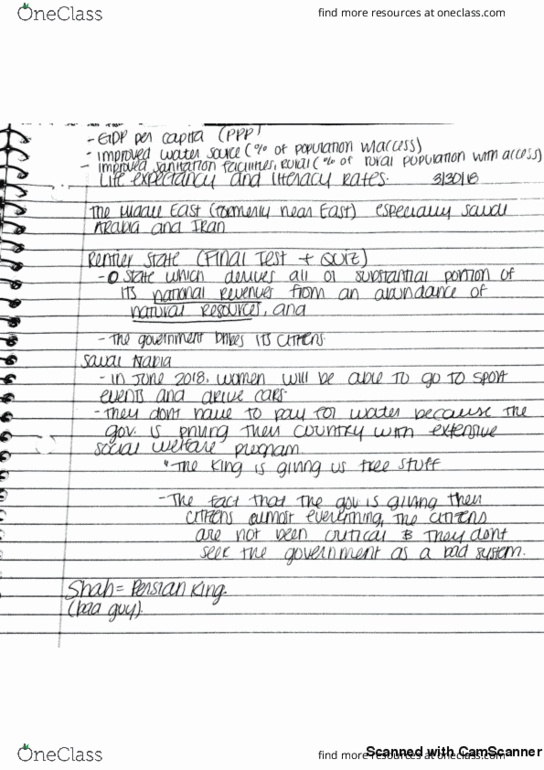 OneClass
find more resources at oneclass.com
- GDP per capita (PPP)
- improved water source (% of population w/access)
- improved sanitation facilities, rural (% of rural population with access)
Life expectancy and literacy rates. 3/30/18
The Middle East (formerly near East) especially saudi
Arabia and Iran
Rentier State (Final Test + Quiz)
- a state which derives all or substantial portion of
its national revenues from an abundance of
natural resources, and
- The government bribes its citizens.
Saudi Arabia
- in June 2018, women will be able to go to sport
events and drive cars.
- They dont have to pay for water because the
gov. is their country with extensive
social welfare program.
"The king is giving us free stuff
- The fact that the gov is giving their
citizens almost everything, the citizens
are not been critical & they dont
seek the government as a bad system.
Shah = Persian King.
(bad guy).
OneClass
find more resources at oneclass.com
Scanned with CamScanner